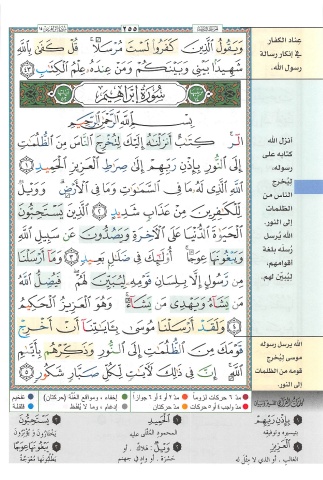 ٢٥٥
وَيَقُولُ الَّذِينَ كَفَرُوا لَسْتَ مُرْسَلًا ۚ قُلْ كَفَىٰ بِاللَّهِ
شَهِيدًا بَيْنِي وَبَيْنَكُمْ وَمَنْ عِندَهُ عِلْمُ الْكِتَابِ ٤٣
سُورَةُ إِبْرَاهِيمَ
بِسْمِ اللَّهِ الرَّحْمَٰنِ الرَّحِيمِ
الر ۚ كِتَابٌ أَنزَلْنَاهُ إِلَيْكَ لِتُخْرِجَ النَّاسَ مِنَ الظُّلُمَاتِ
إِلَى النُّورِ بِإِذْنِ رَبِّهِمْ إِلَىٰ صِرَاطِ الْعَزِيزِ الْحَمِيدِ ١
اللَّهِ الَّذِي لَهُ مَا فِي السَّمَاوَاتِ وَمَا فِي الْأَرْضِ ۗ وَوَيْلٌ
لِّلْكَافِرِينَ مِنْ عَذَابٍ شَدِيدٍ ٢ الَّذِينَ يَسْتَحِبُّونَ
الْحَيَاةَ الدُّنْيَا عَلَى الْآخِرَةِ وَيَصُدُّونَ عَن سَبِيلِ اللَّهِ
وَيَبْغُونَهَا عِوَجًا ۚ أُولَٰئِكَ فِي ضَلَالٍ بَعِيدٍ ٣ وَمَا أَرْسَلْنَا
مِن رَّسُولٍ إِلَّا بِلِسَانِ قَوْمِهِ لِيُبَيِّنَ لَهُمْ ۖ فَيُضِلُّ اللَّهُ
مَن يَشَاءُ وَيَهْدِي مَن يَشَاءُ ۚ وَهُوَ الْعَزِيزُ الْحَكِيمُ
٤ وَلَقَدْ أَرْسَلْنَا مُوسَىٰ بِآيَاتِنَا أَنْ أَخْرِجْ
قَوْمَكَ مِنَ الظُّلُمَاتِ إِلَى النُّورِ وَذَكِّرْهُم بِأَيَّامِ
اللَّهِ ۚ إِنَّ فِي ذَٰلِكَ لَآيَاتٍ لِّكُلِّ صَبَّارٍ شَكُورٍ ٥
عناد الكفار
في إنكار رسالة
رسول الله.
أنزل الله
كتابه على
رسوله،
ليُخرج
الناس من
الظلمات
إلى النور.
الله يرسل
رُسله بلغة
أقوامهم،
ليُبيّن لهم.
الله يرسل رسوله
موسى ليُخرج
قومه من الظلمات
إلى النور.
مد ٦ حركات لزوماً
مد ٢ أو ٤ أو ٦ جوازاً
إخفاء، ومواقع الغُنَّة (حركتان)
تفخيم
مد واجب ٤ أو ٥ حركات
مد حركتان
إدغام، وما لا يُلفظ
قلقلة
بِإِذْنِ رَبِّهِمْ
بتيسيره وتوفيقه
الْعَزِيزِ
الغالب، أو الذي لا مثل له
الْحَمِيدِ
المحمود المُثنى عليه
وَيْلٌ: هلاكٌ، أو
حسرة، أو وادٍ في جهنم
يَسْتَحِبُّونَ
يختارون ويؤثرون
يَبْغُونَهَا عِوَجًا
يطلبونها مُعْوَجّة